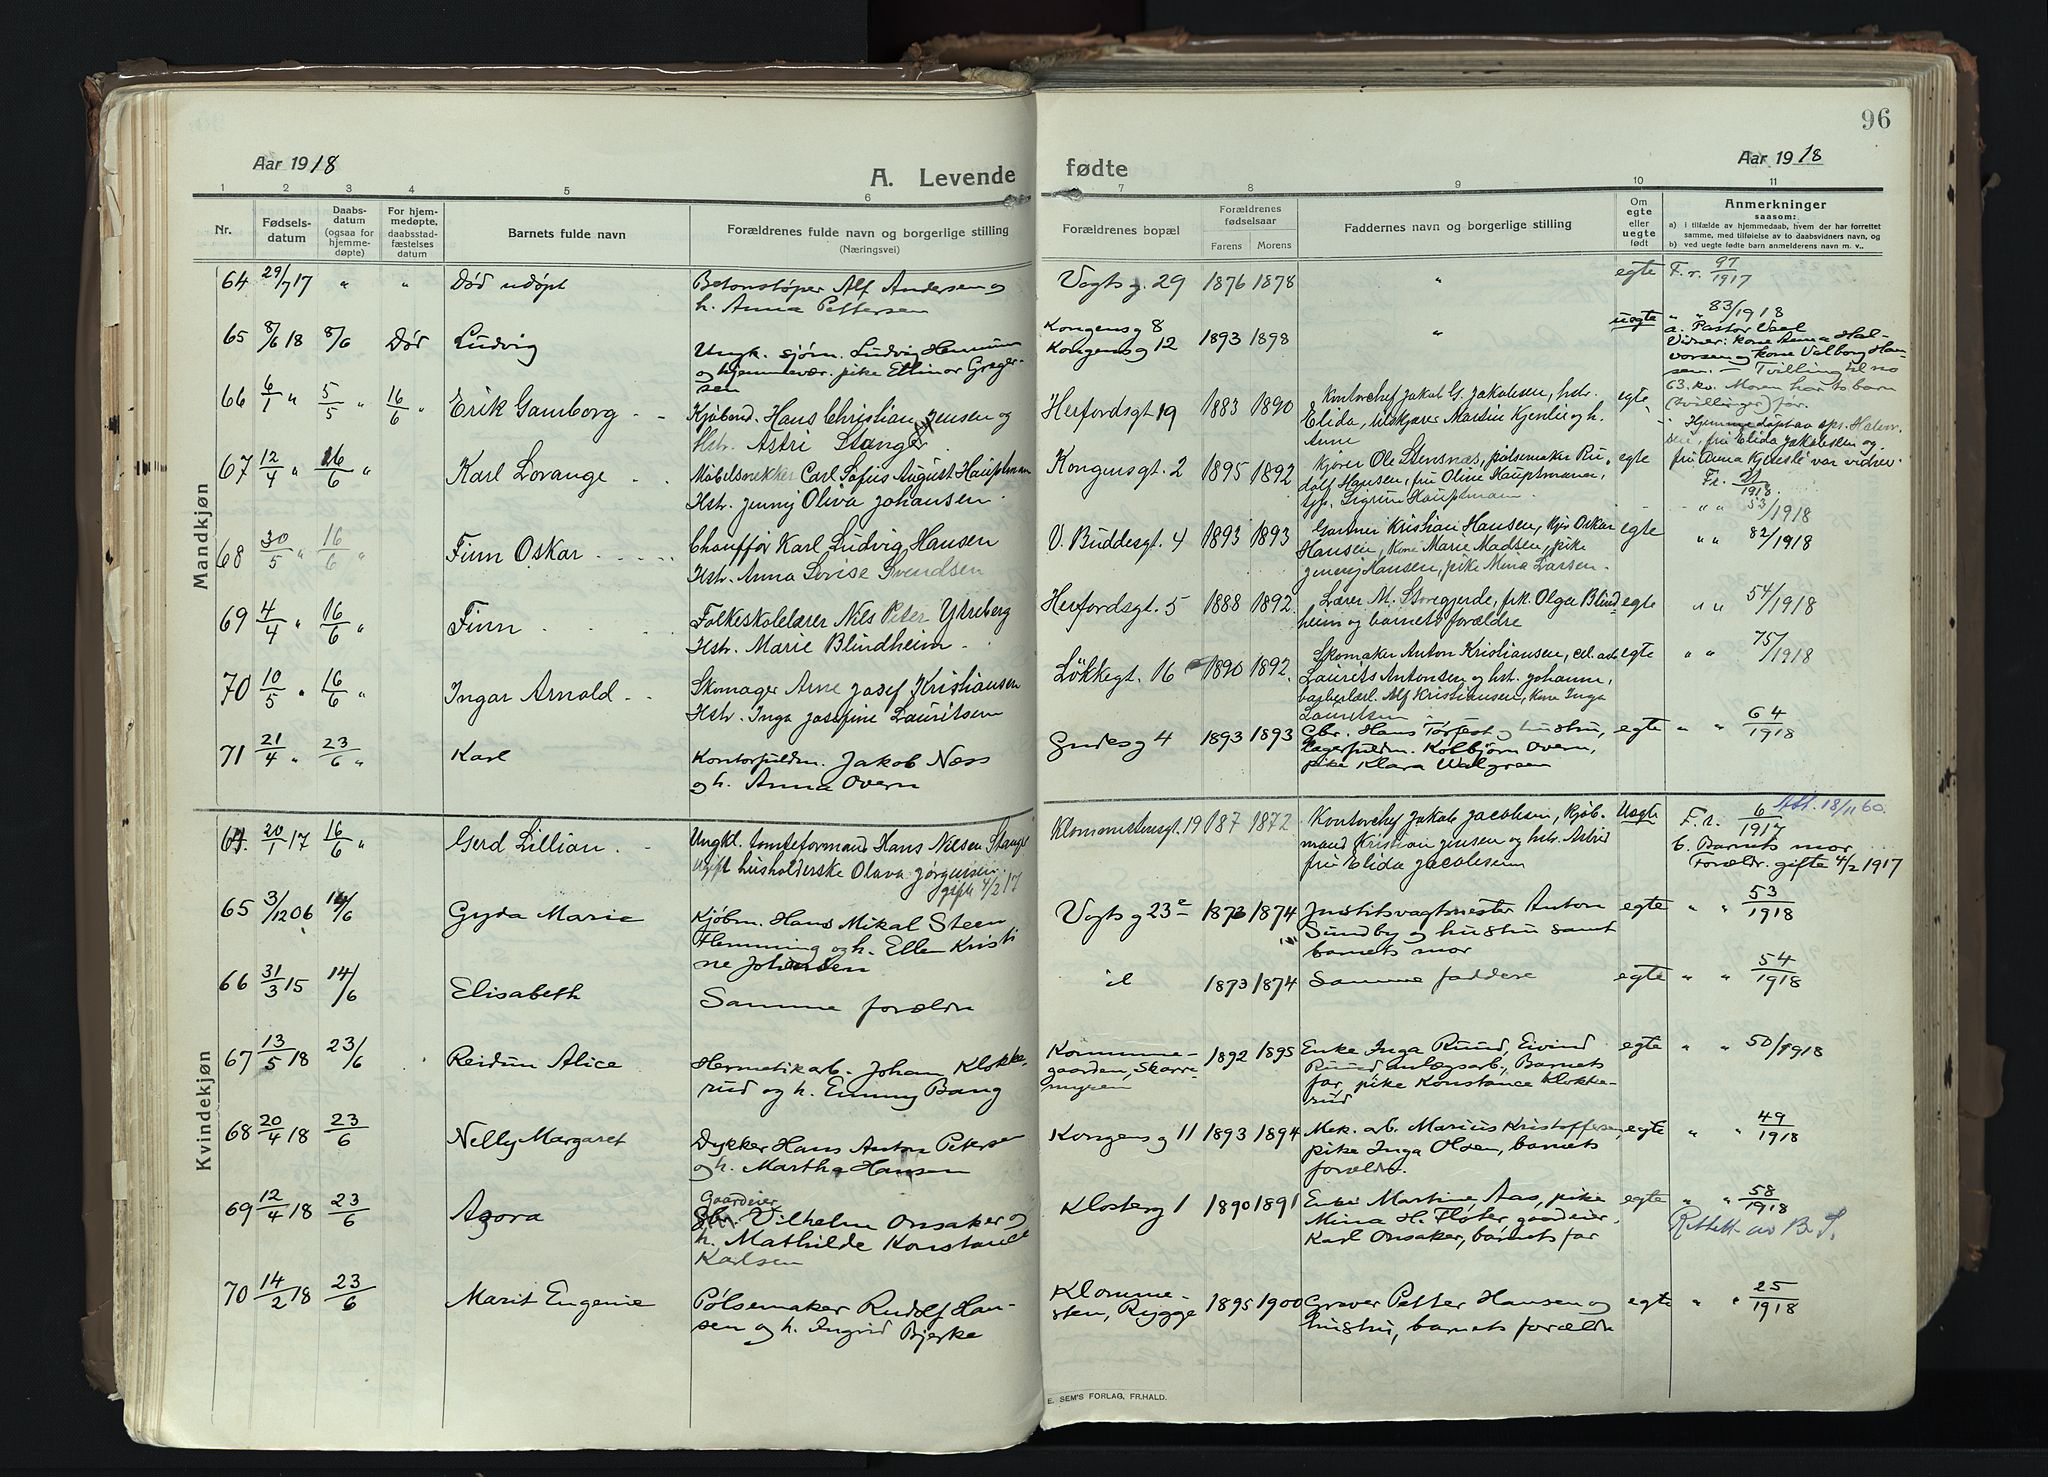 96
Aar 1918
A. Levende fødte
Aar 1918
1 2 3 4 5 6 7 8 9 10 11
Nr.
Fødsels-
datum
Daabs-
datum
(ogsaa for
hjemme-
døpte)
For hjem-
medøpte,
daabsstad-
fæstelses
datum
Barnets fulde navn
Forældrenes fulde navn og borgerlige stilling
(Næringsvei)
Forældrenes bopæl
Forældrenes
fødselsaar
Farens Morens
Faddernes navn og borgerlige stilling
Om
egte
eller
uegte
født
Anmerkninger
saasom:
a) i tilfælde av hjemmedaab, hvem der har forrettet
samme, med tilføielse av to daabsvidners navn, og
b) ved uegte fødte barn anmelderens navn m. v.,
Mandkjøn
64 29/7 17 " " Død udøpt
Betonstøper Alf Andersen og
h. Anna Pettersen
Vogts g. 29 1876 1878 " egte F. r. 97/1917
65 8/6 18 8/6 Død Ludvig
Ungk. sjøm. Ludvig Hennum
og hjemmevær. pike Ellinor Greger-
sen
Kongensg 8
Kongensg 12 1893 1898 " uegte " " 83/1918
a. Pastor Vael
Vidner: kone Anna Hal-
vorsen og kone Valborg Han-
sen. — Tvilling til no
63. kv. Moren har to barn
(tvillinger) før.
66 6/1 " 5/5 " 16/6 " Erik Gamborg
Kjøbmd. Hans Christian Jensen og
Hstr. Astri Stang
Herfordsgt 19 1883 1890
Kontorchef Jakob G. Jakobsen, hstr.
Elida, tilskjærer Martin Kjenlie og h.
Anne
egte
Hjemmedøpt av spr. Halvor-
sen, fru Elida Jakobsen og
fru Anna Kjenslie var vidner.
Fr. 21/1918.
67 12/4 " 16/6 " Karl Lorange
Møbelsnekker Carl Sofus August Hauptman
Hstr. Jenny Oliva Johansen.
Kongensgt. 2 1895 1892
Kjører Ole Stensnæs, pølsemaker Ru-
dolf Hansen, fru Oline Hauptmann,
frk. Sigrun Hauptmann.
egte " " 53/1918
68 30/5 " 16/6 " Finn Oskar
Chauffør Karl Ludvig Hansen
Hstr. Anna Lovise Svendsen
V. Buddesgt. 4 1893 1893
Gartner Kristian Hansen, Kjør Oskar
Hansen, Kone Marie Madsen, pike
Jenny Hansen, pike Mina Larsen.
egte " " 82/1918
69 4/4 " 16/6 " Finn
Folkeskolelærer Nils Peter Ytreberg
Hstr. Marie Blindheim
Herfordsgt. 5 1888 1892.
Lærer M. Storgjerde, frk. Olga Blind-
heim og barnets forældre
egte " " 54/1918
70 10/5 " 16/6 " Ingar Arnold
Skomager Arne Josef Kristiansen
Hstr. Inga Josefine Lauritsen
Løkkegt. 16 1890 1892.
Skomaker Anton Kristiansen,
Laurits Antonsen og hst. Johanne,
Alf Kristiansen, Kone Inga
Lauritsen
egte " " 75/1918
71 21/4 " 23/6 " Karl
Kontorfuldm. Jakob Næss
og h. Anna Overn
Gudesg 4 1893 1893
Gbr. Hans Tørfest og hustru,
Lagerfuldm. Kolbjørn Overn,
pike Klara Walgreen
egte " " 64/1918
Kvindekjøn
64. 20/1 17 16/6 " Gerd Lillian
Ungkl. tomteformand Hans Nilsen Stange
ugift husholderske Olava Jørgensen
gift 4/2 17
Klommestensgt. 19 187 1872
Kontorchef Jakob Jacobsen, Kjøb-
mand Kristian Jensen og hstr. Astrid
fru Elida Jacobsen
Uegte F. r. 6/1917 Att. 18/11 60.
b. Barnets mor
Forældr. gifte 4/2 1917
65 3/12 06 14/6 Gyda Marie
Kjøbm. Hans Mikal Steen
Flemming og h. Ellen Kristi
ne Johansen
Vogts g 23 e 1873 1874
Justitsvagtmester Anton
Sundby og hustru samt
barnets mor
egte " " 53/1918
66 31/3 15 14/6 Elisabeth
Samme forældre
il 1873 1874 Samme faddere egte " " 54/1918
67 13/5 18 23/6 Reidun Alice
Hermetikarb. Johan Klokke-
rud og h. Emmy Bang
Kommune-
gaarden, Skarre-
myren 1892 1895
Enke Inga Ruud, Eivind
Ruud anlægsarb., Barnets
far, pike Konstance Klokke-
rud
egte " " 50/1918
68 20/4 18 23/6 Nelly Margaret
Dykker Hans Anton Petersen
og h. Martha Hansen
Kongens g 11 1893 1894
Mek. arb. Marius Kristoffersen,
pike Inga Olsen, barnets
forældre.
egte " " 49/1918
69 12/4 18 23/6 Azora
Gaardeier
Vilhelm Onsaker og
h. Mathilde Konstance
Karlsen
Klosterg 1 1890 1891
Enke Martine Aas, pike
Mina H. Fløter, gaardeier
Karl Onsaker, barnets far
egte " " 58/1918
Rettet av B. S.
70 14/2 18 23/6 Marit Eugenie
Pølsemaker Rudolf Han-
sen og h. Ingrid Bjerke
Klomme-
sten, Rygge 1895 1900
Graver Petter Hansen og
hustru, barnets forældre
egte " " 25/1918
E. SEM'S FORLAG, FR.HALD.